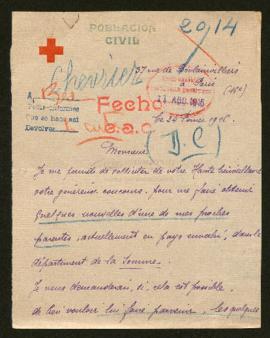 POBLACION
CIVIL
20,14
Chevrier
37 rue de
à Paris
Fecho
C.a.C.
Devolver
le 22 Février 1916
D.C)
Monsieur
Je me permets de solliciter de votre Haute bienveillance
votre généreux concours, pour me faire obtenir
quelques nouvelles d'une de mes proches
parentes, actuellement en pays envahi, dans le
département de la Somme.
Je vous demanderais si, cela est possible,
de bien vouloir lui faire parvenir, les quelques